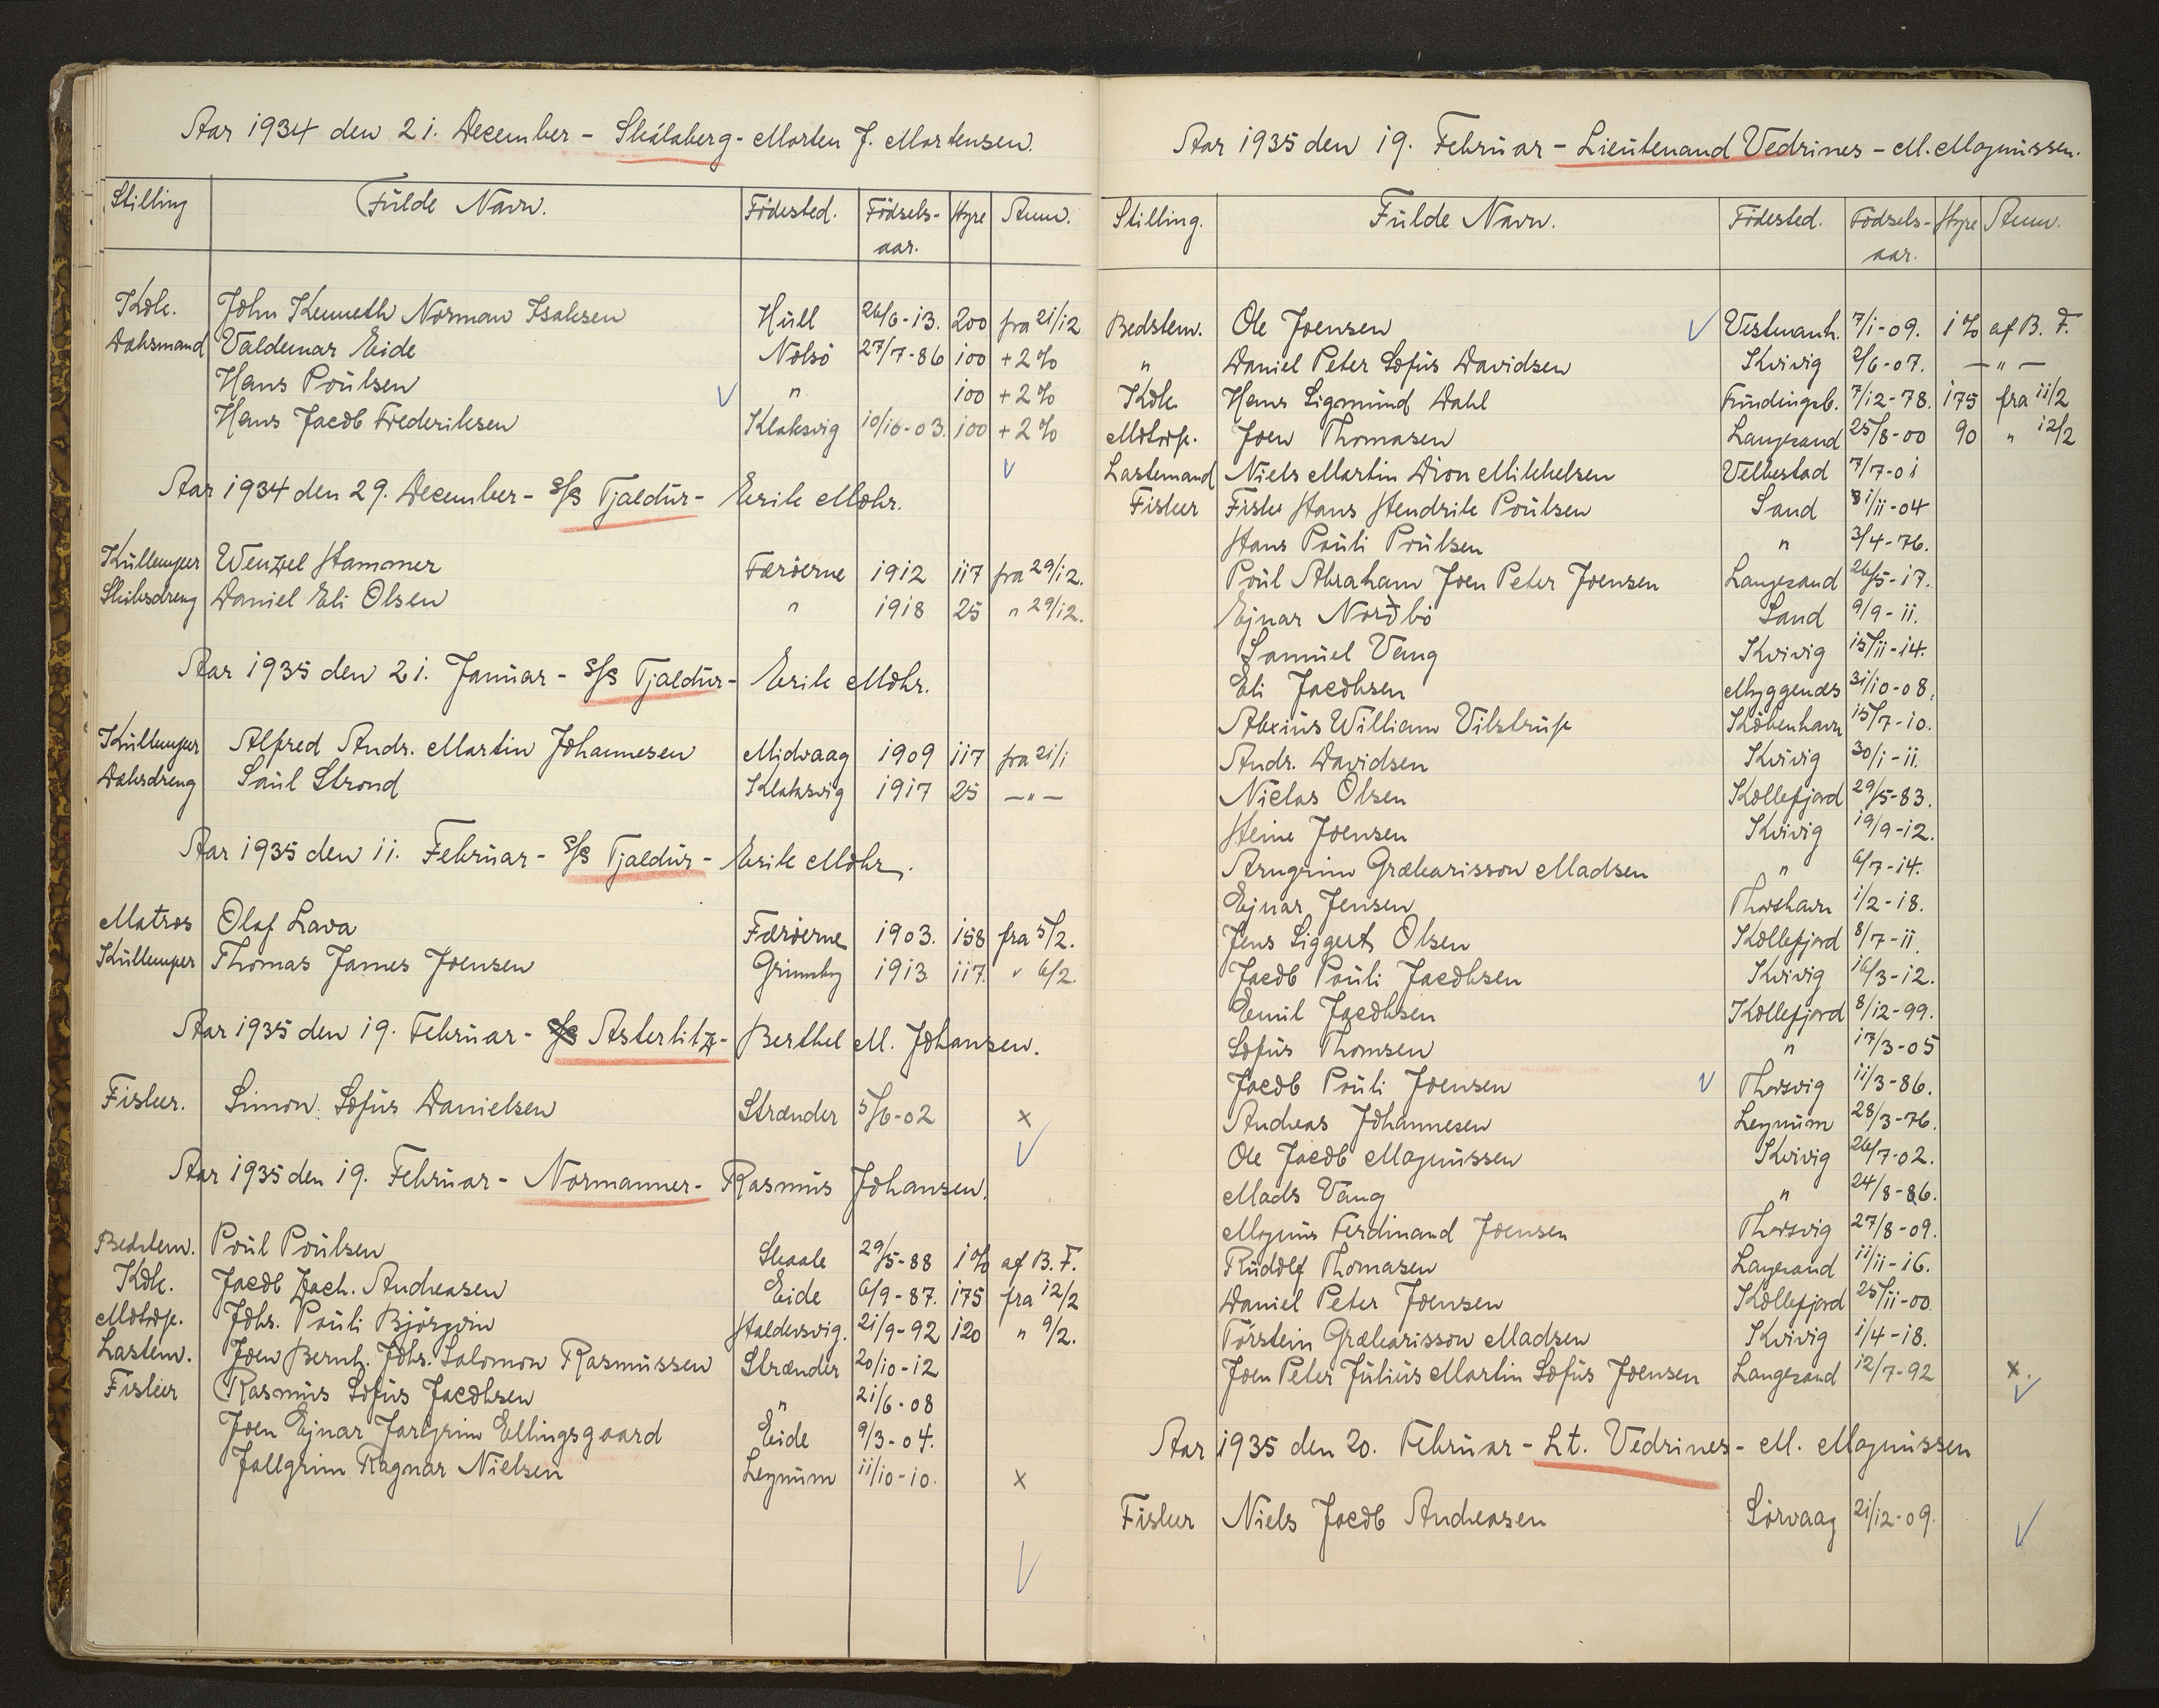 Aar 1934 den 21. December - Skálaberg - Morten J. Mortensen.
Stilling Fulde Navn. Födested. Födsels-aar. Hyre Anm.
Kok. John Kenneth Norman Isaksen Hull 26/6-13. 200 fra 21/12
Daksmand Valdemar Eide Nolsö 27/7-86 100 + 2%
Hans Poulsen " 100 + 2%
Hans Jacob Frederiksen Klaksvig 10/10-03. 100 + 2%
Aar 1934 den 29. December - s/s Tjaldur - Erik Mohr.
Kullemper Wenzel Hammer Færöerne 1912 117 fra 29/12.
Skibsdreng Daniel Eli Olsen " 1918 25 " 29/12.
Aar 1935 den 21. Januar - s/s Tjaldur - Erik Mohr.
Kullemper Alfred Andr. Martin Johannesen Midvaag 1909 117 fra 21/1
Daksdreng Saul Strond Klaksvig 1917 25 — " —
Aar 1935 den 11. Februar - s/s Tjaldur - Erik Mohr.
Matros Olaf Lava Færöerne 1903. 158 fra 5/2.
Kullemper Thomas James Joensen Grimsby 1913 117. " 6/2.
Aar 1935 den 19. Februar - Asterlitz - Berthel M. Johansen.
Fisker. Simon Sofus Danielsen Strænder 5/6-02 x
Aar 1935 den 19. Februar - Normanner - Rasmus Johansen.
Bedstem. Poul Poulsen Skaale 29/5-88 1% af B. F.
Kok. Jacob Zach. Andreasen Eide 6/9-87. 175 fra 12/2
Motorp. Johs. Pouli Björgvin Haldersvig. 21/9-92 120 " 9/2.
Lastem. Joen Bernh. Johs. Salomon Rasmussen Strænder 20/10-12
Fisker Rasmus Sofus Jacobsen " 21/6-08
Joen Ejnar Jorgrim Ellingsgaard Eide 9/3-04.
Jallgrim Ragnar Nielsen Leynum 11/10-10. x
Aar 1935 den 19. Februar - Lieutenand Vedrines - M. Magnussen.
Stilling. Fulde Navn. Födested. Födsels-aar. Hyre Anm.
Bedstem. Ole Joensen Vestmanh. 7/1-09. 1% af B. F.
" Daniel Peter Sofus Davidsen Kvivig 2/6-07. — " —
Kok. Hans Sigmund Dahl Fundingsb. 7/12-78. 175 fra 11/2
Motorp. Joen Thomasen Langesand 25/8-00 90 " 12/2
Lastemand Niels Martin Dion Mikkelsen Velbestad 7/7-01
Fisker Fisker Hans Hendrik Poulsen Sand 31/11-04
Hans Pouli Poulsen " 3/4-76.
Poul Abraham Joen Peter Joensen Langesand 26/5-17.
Ejnar Norðbö Sand 9/9-11.
Samuel Vang Kvivig 15/11-14.
Eli Jacobsen Myggenæs 31/10-08.
Alexius William Vilstrup Köbenhavn 15/7-10.
Andr. Davidsen Kvivig 30/1-11.
Niclas Olsen Kollefjord 29/5-83.
Heine Joensen Kvivig 19/9-12.
Arngrim Grækarisson Madsen " 6/7-14.
Ejnar Jensen Thorshavn 1/2-18.
Jens Siggert Olsen Kollefjord 8/7-11
Jacob Pouli Jacobsen Kvivig 16/3-12.
Emil Jacobsen Kollefjord 8/12-99.
Sofus Thomsen " 17/3-05
Jacob Pouli Joensen Thorsvig 11/3-86.
Andreas Johannesen Leynum 28/3-76.
Ole Jacob Magnussen Kvivig 26/7-02.
Mads Vang " 24/8-86.
Magnus Ferdinand Joensen Thorsvig 27/8-09.
Rudolf Thomasen Langesand 11/11-16.
Daniel Peter Joensen Kollefjord 25/11-00
Torstein Grækarisson Madsen Kvivig 1/4-18.
Joen Peter Julius Martin Sofus Joensen Langesand 12/7-92 x.
Aar 1935 den 20. Februar - Lt. Vedrines - M. Magnussen
Fisker Niels Jacob Andreasen Sörvaag 21/12-09.